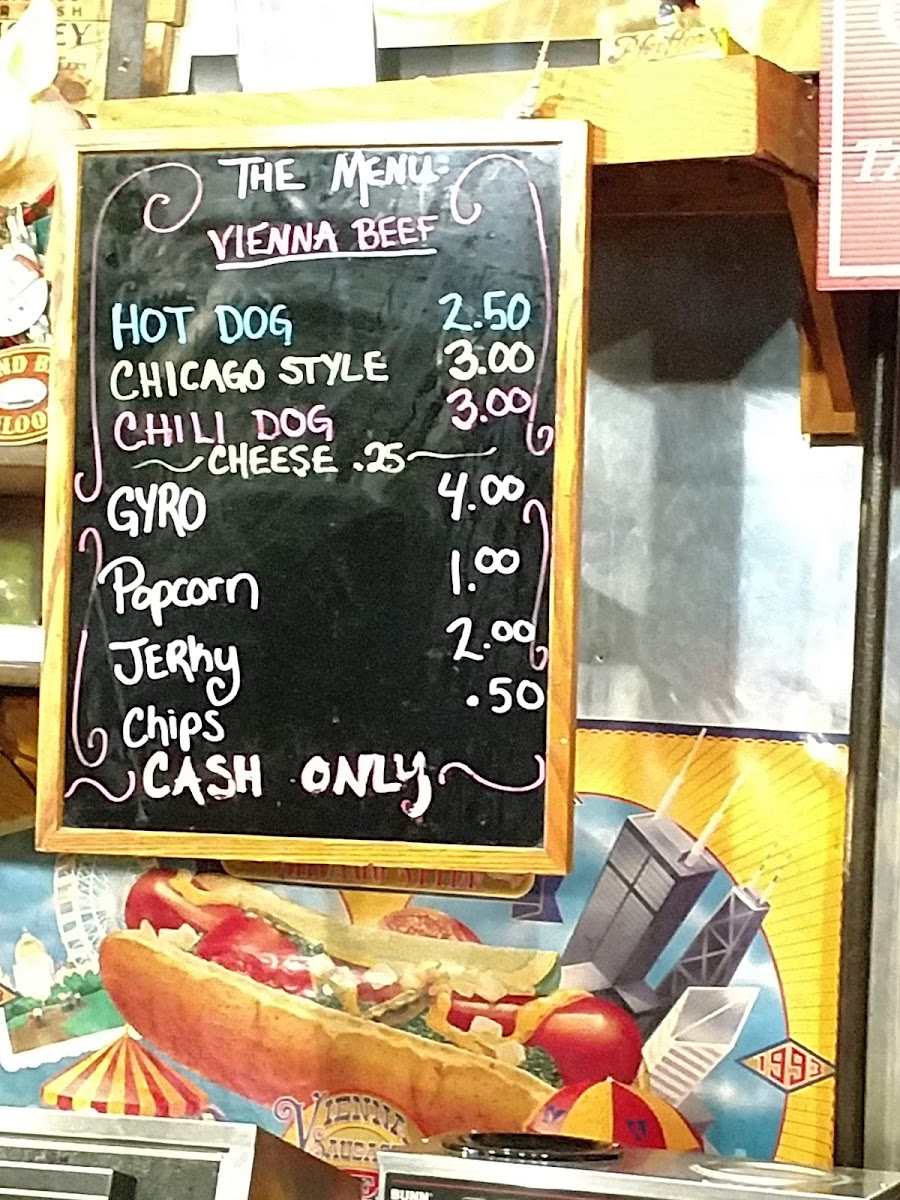 THE MENU:
VIENNA BEEF
HOT DOG 2.50
CHICAGO STYLE 3.00
CHILI DOG 3.00
CHEESE .25
GYRO 4.00
Popcorn 1.00
JERKY 2.00
Chips .50
CASH ONLY
1993
VIENNA
BUNN